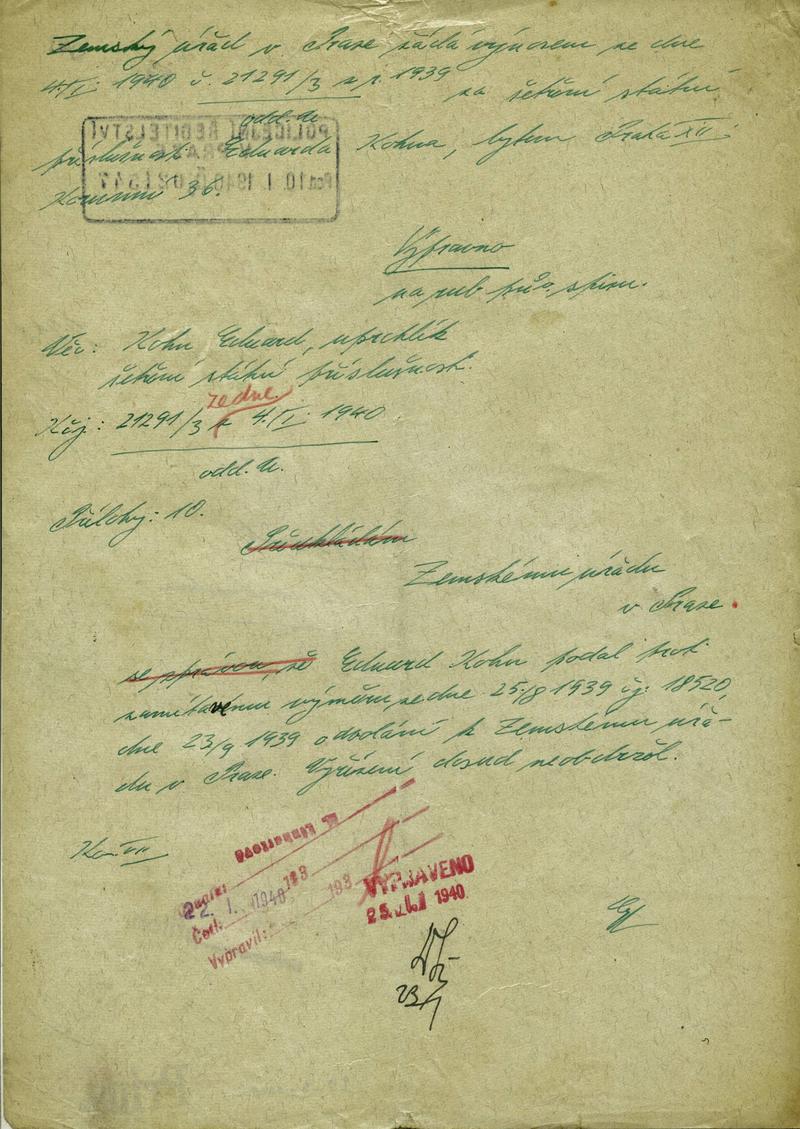 Zemský úřad v Praze žádá výnosem ze dne
4./I. 1940 č. 21291/3 z r. 1939 za šetření státní
odd. 
příslušnosti Eduarda Kohna, bytem Praha XII.,
Korunní 36.
POLICEJNÍ ŘEDITELSTVÍ
V PRAZE
10. I. 1940 021547
Výpravno
na rub spisu.
Věc: Kohn Eduard, uprchlík
šetření státní příslušnosti.
ze dne
K čj: 21291/3 z 4./I. 1940
odd.
Přílohy: 10.
Předkládám
Zemskému úřadu
v Praze.
se zprávou, že Eduard Kohn podal proti
zamítavému výměru ze dne 25./8 1939 čj: 18520,
dne 23/9 1939 odvolání k Zemskému úřa-
du v Praze. Vyřízení dosud neobdržel.
22. I. 1940 193
Četl: 193
Vypravil:
VYPRAVENO
25. I. 1940
23/1